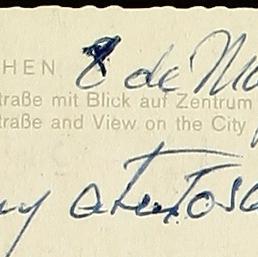 HEN 8 de Ma
traße mit Blick auf Zentrum
traße and View on the City
y atentosa